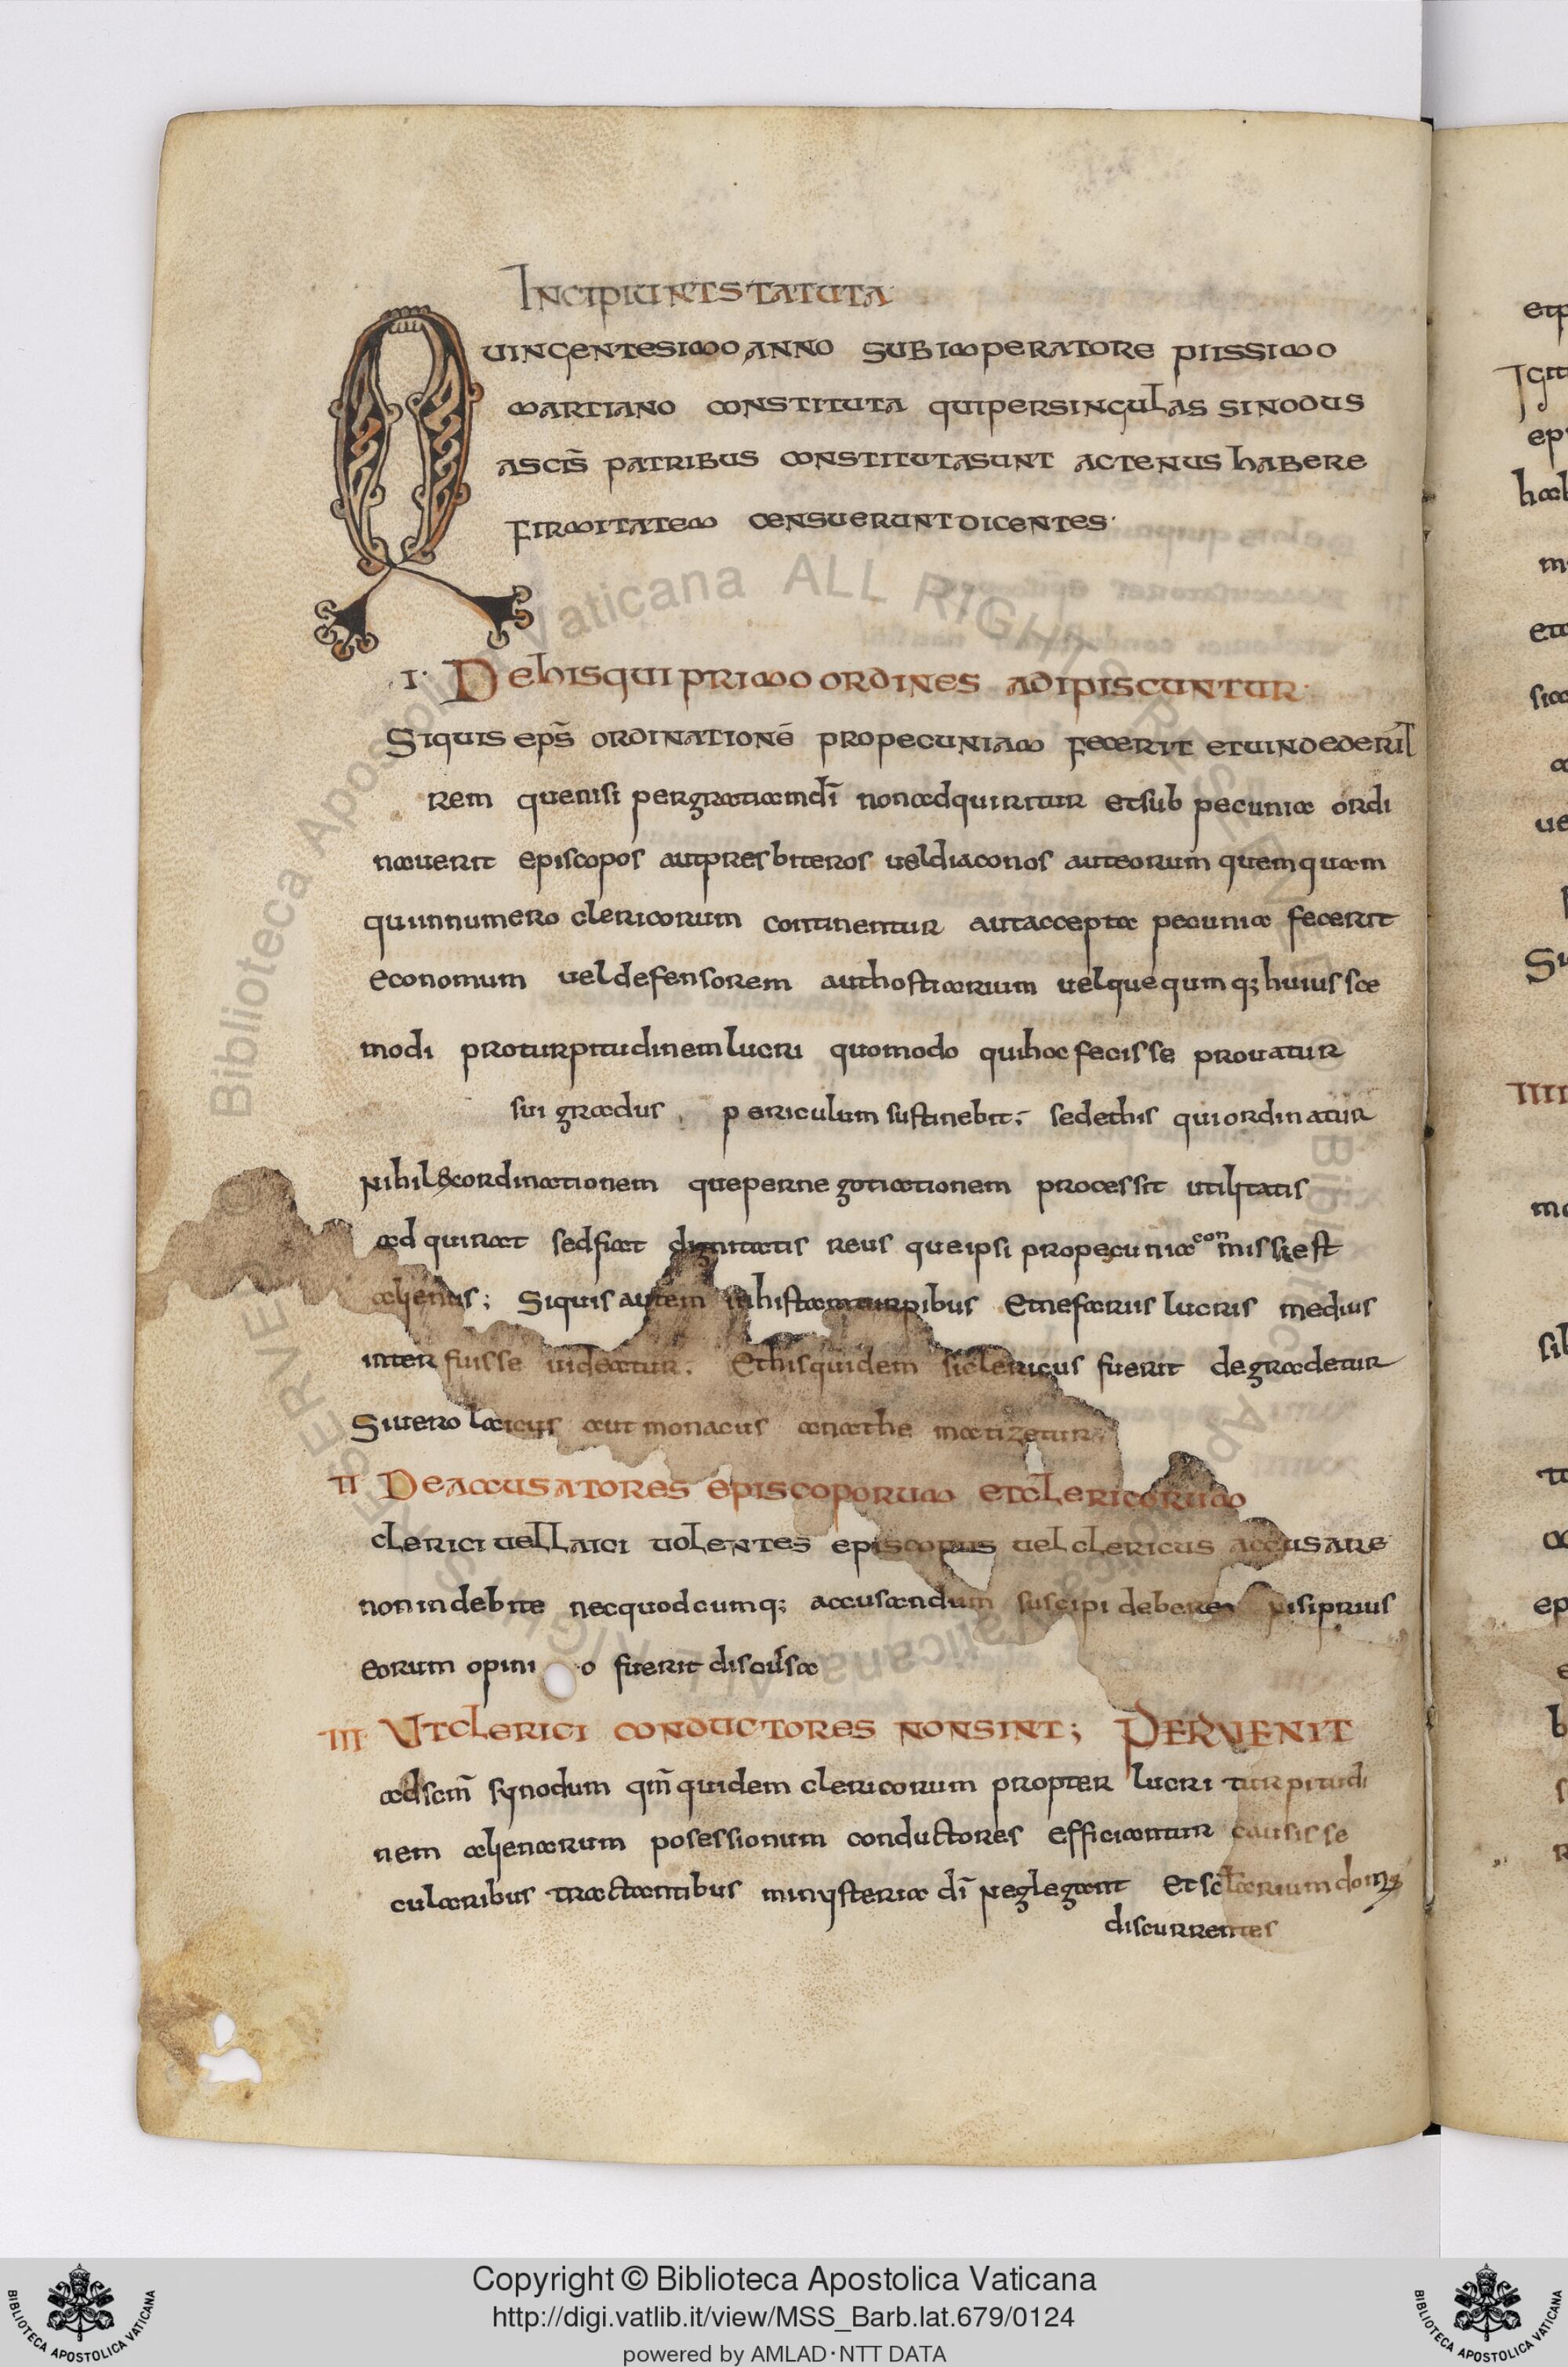 INCIPIUNT STATUTA
QUINGENTESIMO ANNO SUB IMPERATORE PIISSIMO
MARTIANO CONSTITUTA QUI PER SINGULAS SINODUS
A SCIS̄ PATRIBUS CONSTITUTA SUNT ACTENUS HABERE
FIRMITATEM CENSUERUNT DICENTES·
I· DE HIS QUI PRIMO ORDINES ADIPISCUNTUR·
SI QUIS EPS̄ ORDINATIONĒ PRO PECUNIAM FECERIT ET UINDEDERIT
rem que nisi per gratiam dī non adquiritur et sub pecunia ordi
nauerit episcopos aut presbiteros uel diaconos aut eorum quemquam
qui in numero clericorum continentur aut accepta pecunia fecerit
economum uel defensorem aut hostiarium uel quequmq; huiusce
modi pro turpitudinem lucri quomodo qui hoc fecisse prouatur
sui gradus periculum sustinebit; sed et his qui ordinatur
nihil & ordinationem que per negotiationem processit utilitatis
adquirat sed fiat dignitatis reus que ipsi pro pecuniæ conmissi est
alienus; Si quis autem in his tam turpibus et nefariis lucris medius
inter fuisse uideatur. Et his quidem si clericus fuerit degradetur
Si uero laicus aut monacus anathematizetur
II DE ACCUSATORES EPISCOPORUM ET CLERICORUM
CLERICI UEL LAICI UOLENTES EPISCOPUS UEL CLERICUS ACCUSARE
non indebite nec quodcumq; accusandum suscipi debere nisi prius
eorum opini o fuerit discusa
III UT CLERICI CONDUCTORES NON SINT; PERVENIT
ad scm̄ synodum qm̄ quidem clericorum propter lucri turpitudi
nem alienarum posessionum conductores efficiantur causis se
cularibus tractantibus minysteria dī neglegant Et sclarium domus
discurrentes
Copyright © Biblioteca Apostolica Vaticana
http://digi.vatlib.it/view/MSS_Barb.lat.679/0124
powered by AMLAD·NTT DATA
BIBLIOTECA APOSTOLICA VATICANA
BIBLIOTECA APOSTOLICA VATICANA